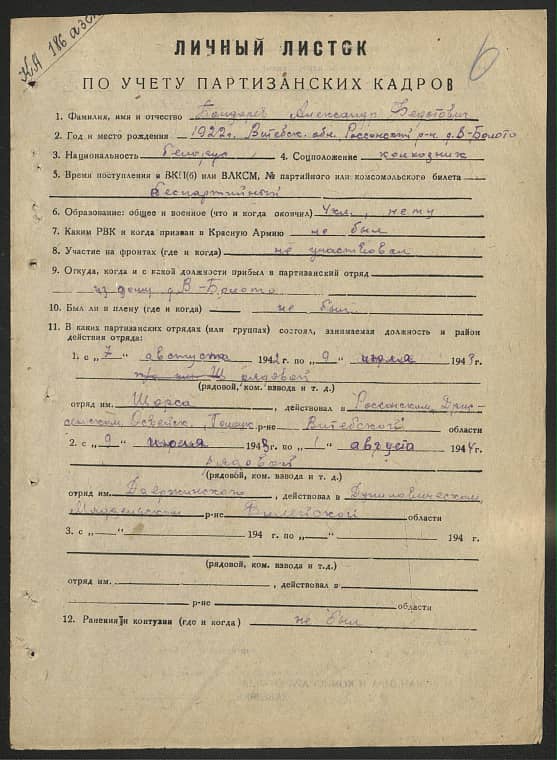 КА 186
6
ЛИЧНЫЙ ЛИСТОК
ПО УЧЕТУ ПАРТИЗАНСКИХ КАДРОВ
1. Фамилия, имя и отчество Александр Федотович
2. Год и место рождения 1922г. Витебск. обл. Россонский р-н д. В-Болото
3. Национальность белорус 4. Соцположение колхозник
5. Время поступления в ВКП(б) или ВЛКСМ, № партийного или комсомольского билета
беспартийный
6. Образование: общее и военное (что и когда окончил) 4кл., нету
7. Каким РВК и когда призван в Красную Армию не был
8. Участие на фронтах (где и когда) не участвовал
9. Откуда, когда и с какой должности прибыл в партизанский отряд
из дому д. В-Болото
10. Был ли в плену (где и когда) не был
11. В каких партизанских отрядах (или группах) состоял, занимаемая должность и район
действия отряда:
1. с „7“ августа 1942 г. по „9“ июля 1943 г.
рядовой
(рядовой, ком. взвода и т. д.)
отряд им. Щорса, действовал в Россонском, Дрис-
сенском, Освейск, Полоцк. р-не Витебской области
2. с „9“ июля 1943 г. по „1“ августа 1944 г.
рядовой
(рядовой, ком. взвода и т. д.)
отряд им. Дзержинского, действовал в Дуниловическом,
Мядельском р-не Вилейской области
3. с „ “ 194 г. по „ “ 194 г.
(рядовой, ком. взвода и т. д.)
отряд им. , действовал в
р-не области
12. Ранения и контузии (где и когда) не был